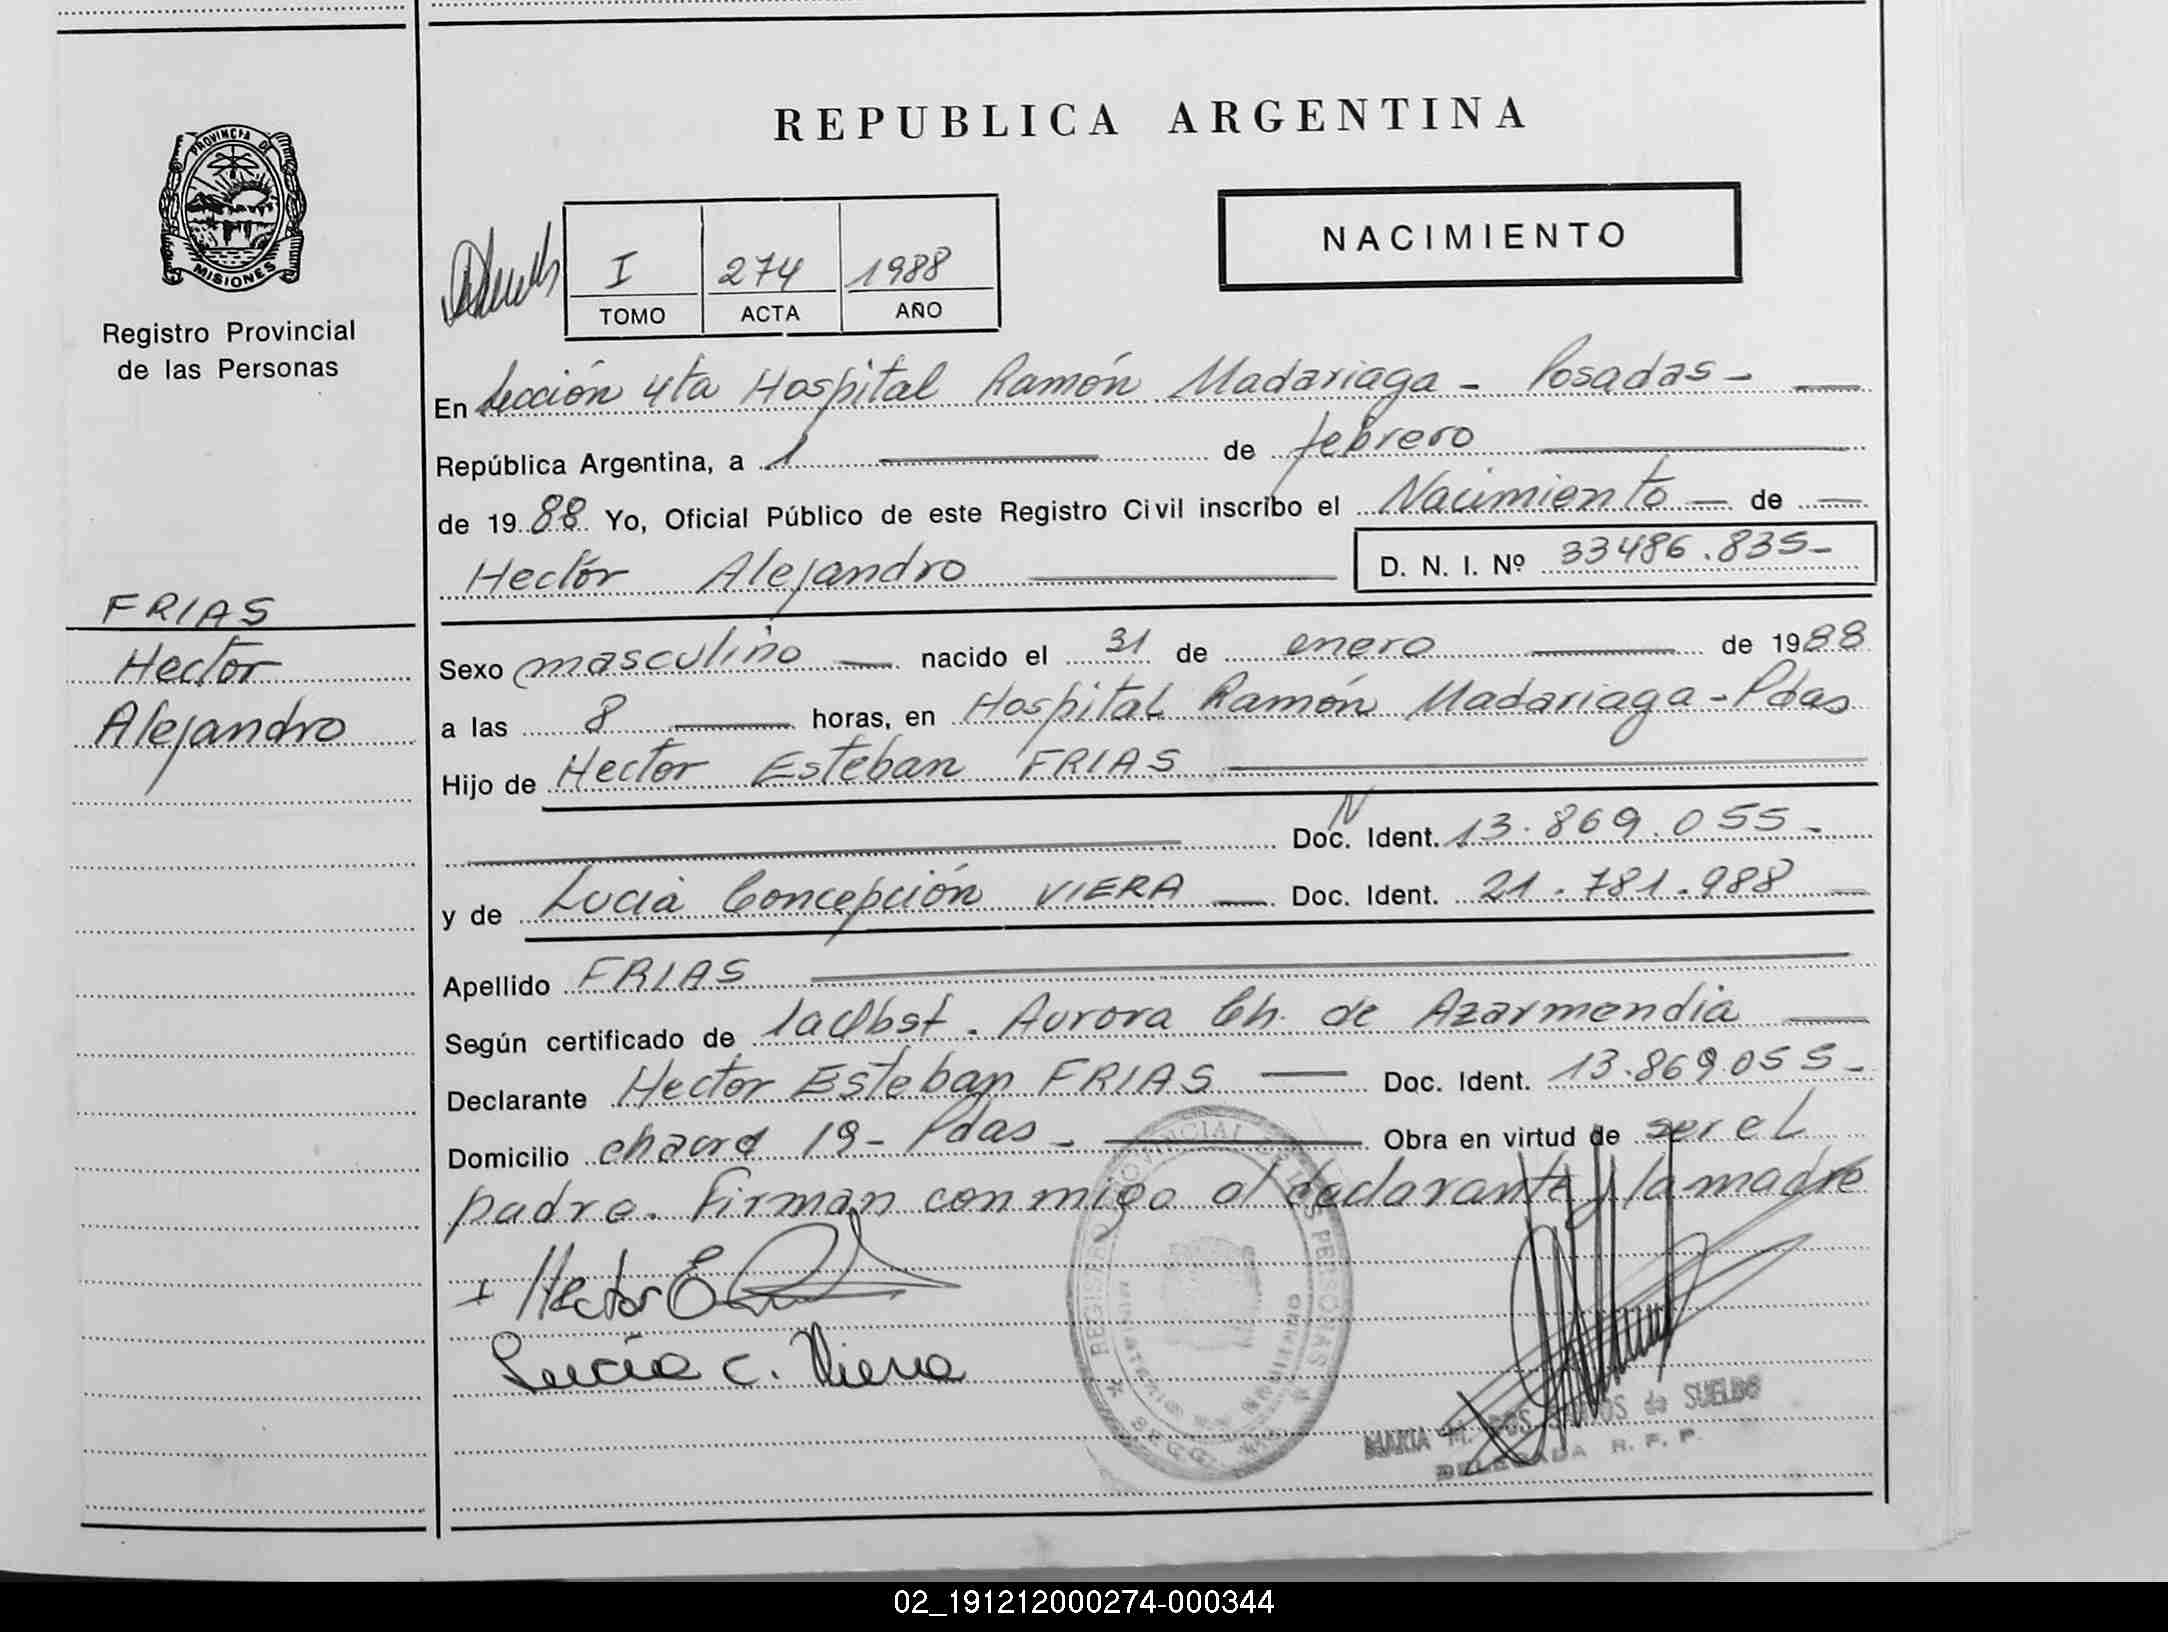 REPUBLICA ARGENTINA
PROVINCIA DE
MISIONES
Registro Provincial
de las Personas
NACIMIENTO
I 274 1988
TOMO ACTA AÑO
En Sección 4ta Hospital Ramón Madariaga - Posadas -
República Argentina, a 1 de febrero
de 1988 Yo, Oficial Público de este Registro Civil inscribo el Nacimiento - de
Hectór Alejandro D. N. I. Nº 33486.835-
FRIAS
Hector
Alejandro
Sexo masculino nacido el 31 de enero de 1988
a las 8 horas, en Hospital Ramón Madariaga - Pdas
Hijo de Hector Esteban FRIAS
N
Doc. Ident. 13.869.055-
y de Lucia Concepción VIERA Doc. Ident. 21.781.988
Apellido FRIAS
Según certificado de la Obst. Aurora Ch. de Azarmendia
Declarante Hector Esteban FRIAS Doc. Ident. 13.869.055-
Domicilio chacra 19- Pdas - Obra en virtud de ser el
padre. Firman conmigo el declarante y la madre
Hector E
Lucia C. Viera
REGISTRO PROVINCIAL DE LAS PERSONAS
MARIA M. DOS SANTOS de SUELDO
DELEGADA R. P. P.
02_191212000274-000344